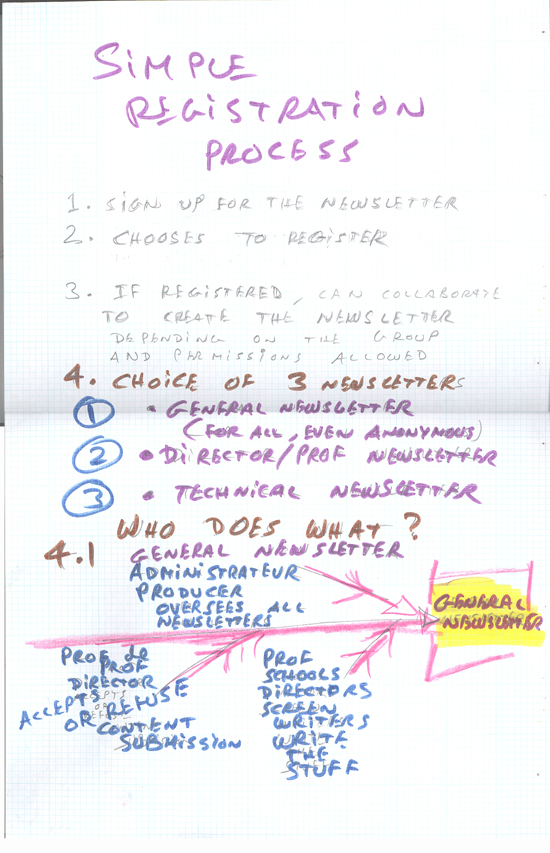 SIMPLE
REGISTRATION
PROCESS
1. SIGN UP FOR THE NEWSLETTER
2. CHOOSES TO REGISTER
3. IF REGISTERED, CAN COLLABORATE
TO CREATE THE NEWSLETTER
DEPENDING ON THE GROUP
AND PERMISSIONS ALLOWED
4. CHOICE OF 3 NEWSLETTERS
1 • GENERAL NEWSLETTER
(FOR ALL, EVEN ANONYMOUS)
2 • DIRECTOR/PROF NEWSLETTER
3 • TECHNICAL NEWSLETTER
WHO DOES WHAT?
4.1 GENERAL NEWSLETTER
ADMINISTRATEUR
PRODUCER
OVERSEES ALL
NEWSLETTERS
GENERAL
NEWSLETTER
PROF
PROF
DIRECTOR
ACCEPTS
OR REFUSE
CONTENT
SUBMISSION
PROF
SCHOOLS
DIRECTORS
SCREEN
WRITERS
WRITE
THE
STUFF